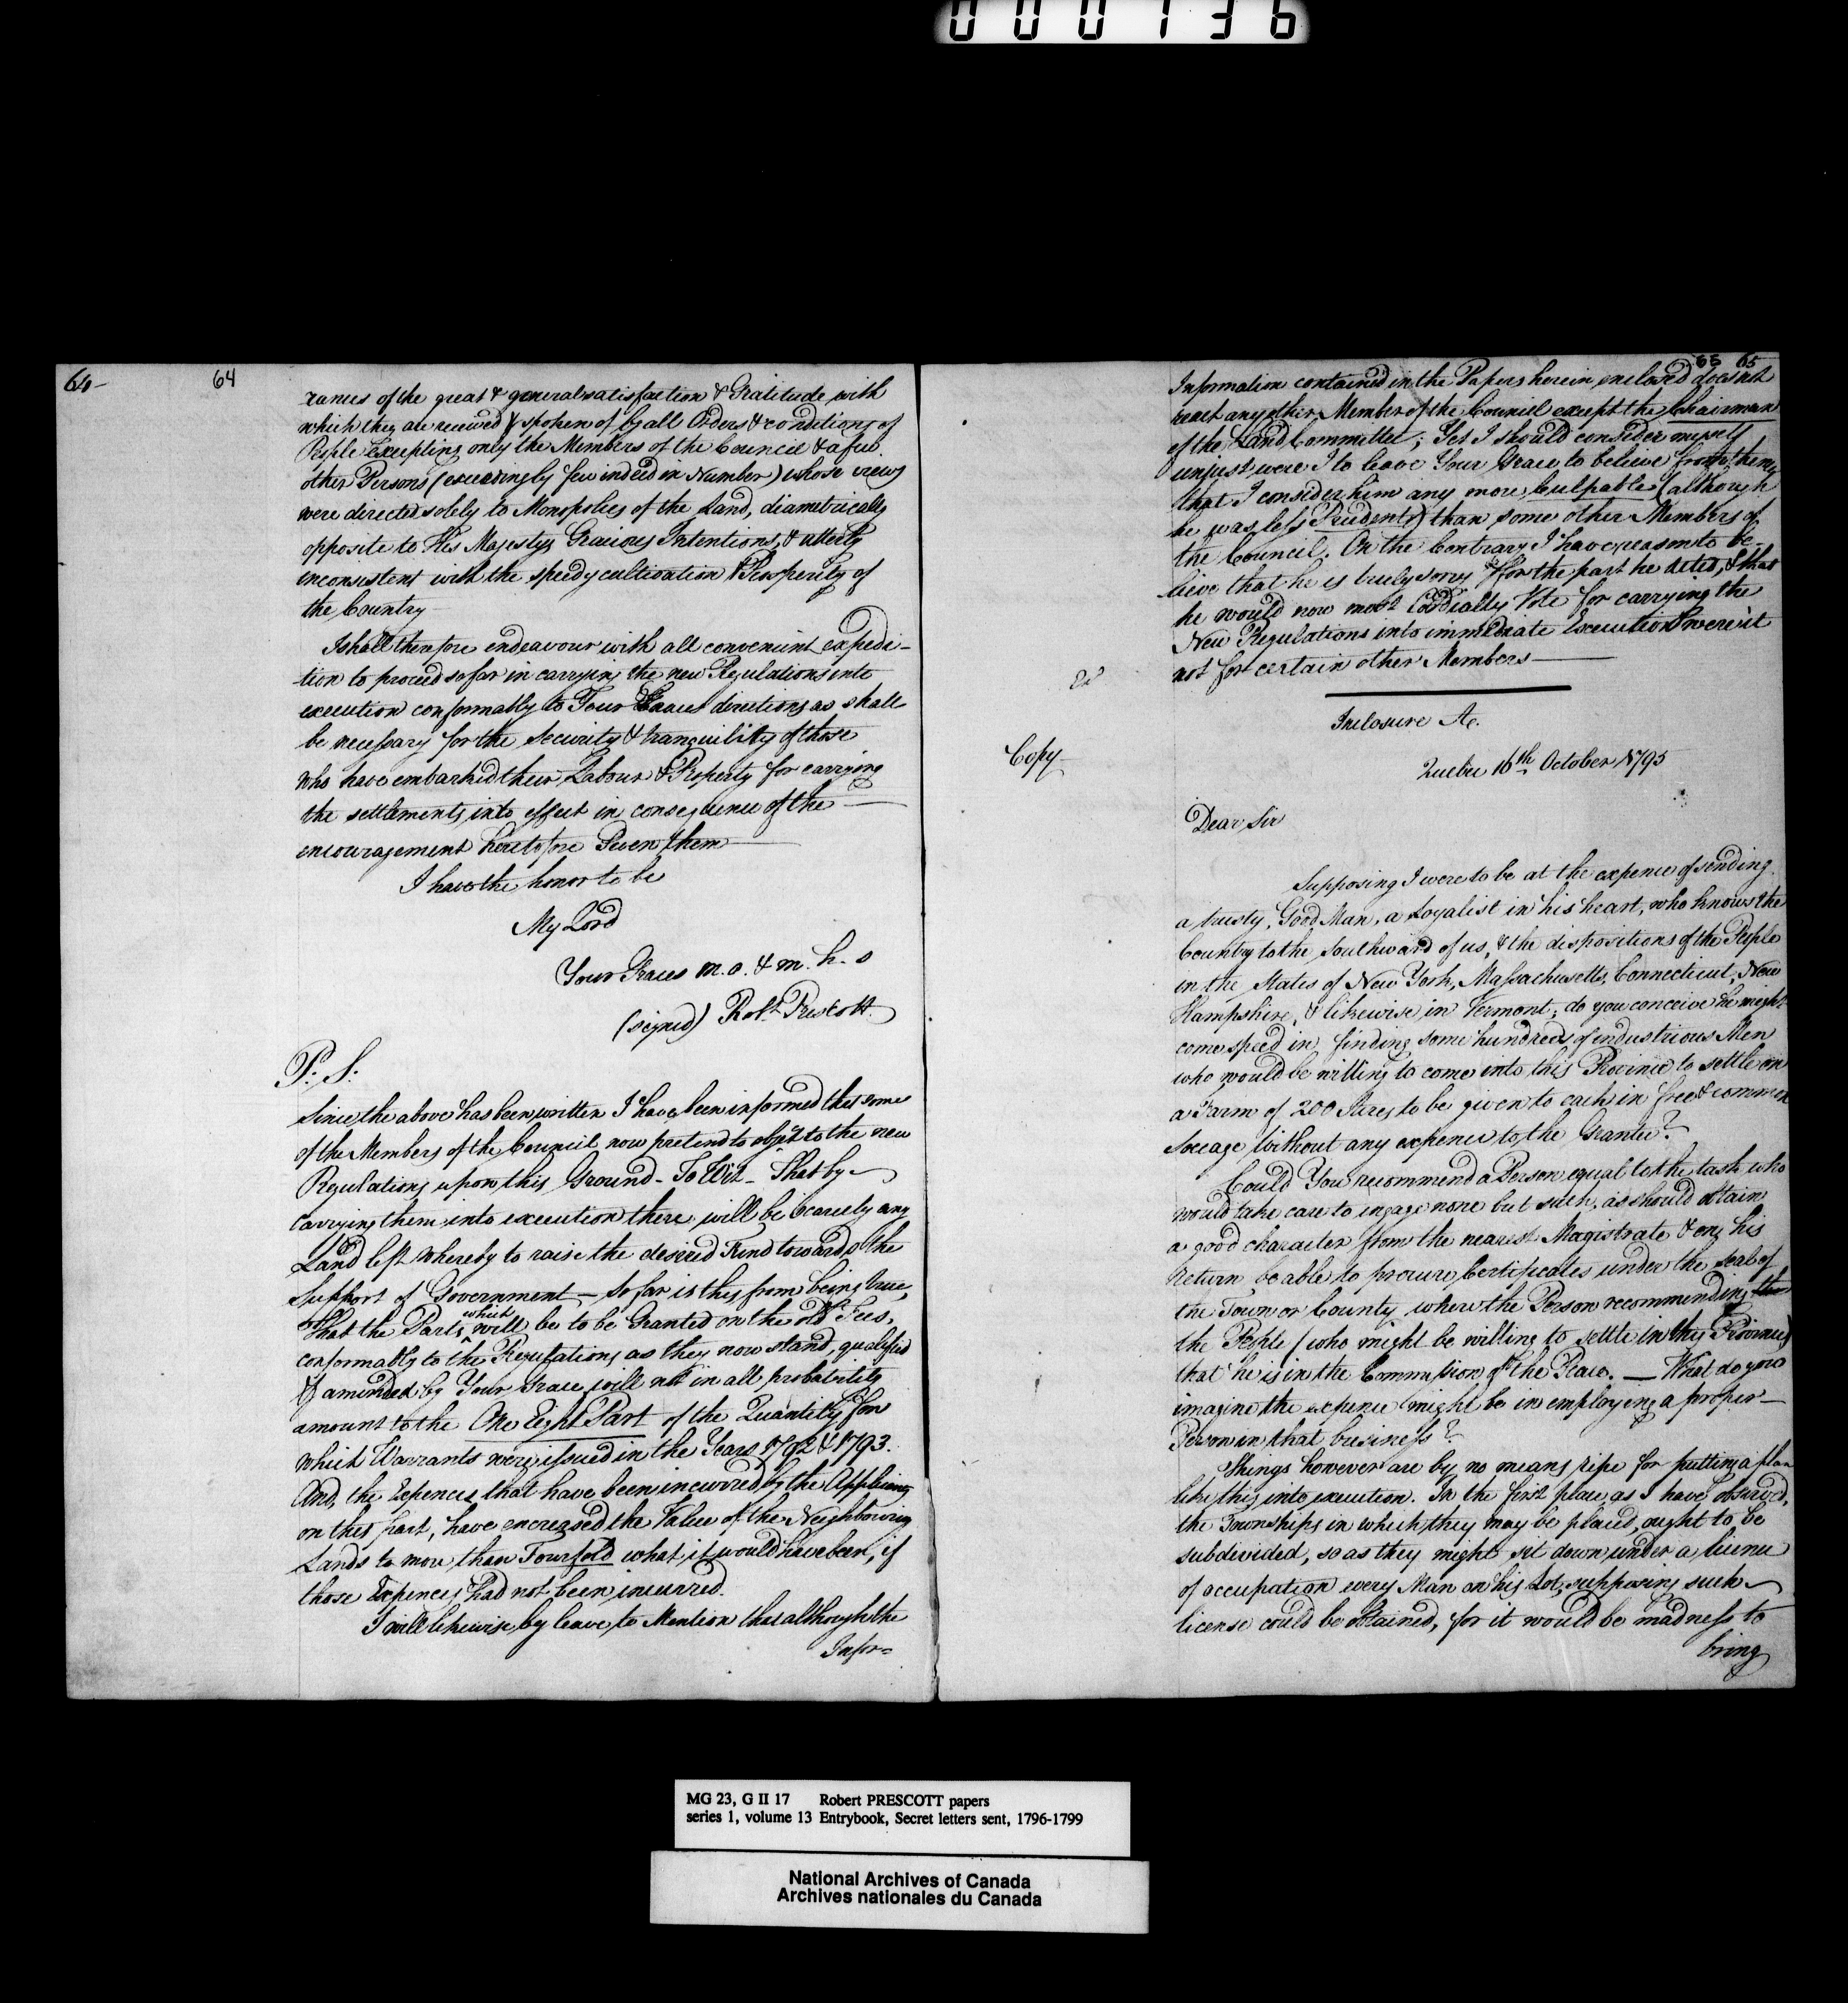 000136
64- 64
rances of the great & general satisfaction & Gratitude with
which they are received & spoken of by all Orders & conditions of
People Excepting only the Members of the Council & a few
other Persons (exceedingly few indeed in Number) whose views
were directed solely to Monopolies of the Land, diametrically
opposite to His Majestys Gracious Intentions, & utterly
inconsistent with the speedy cultivation & Prosperity of
the Country
I shall therefore endeavour with all convenient expedi-
tion to proceed so far in carrying the new Regulations into
execution conformably to Your Graces directions as shall
be necessary for the Security & tranquility of those
who have embarked their Labour & Property for carrying
the settlements into effect in consequence of the
encouragement heretofore Given them
I have the honor to be
My Lord
Your Graces m. o. & m. h. s
(signed) Robt. Prescott
P.. S:
Since the above has been written I have been informed that some
of the Members of the Council now pretend to object to the new
Regulations upon this Ground - To Wit - That by
carrying them into execution there will be scarcely any
Land left whereby to raise the desired Fund towards the
Support of Government - So far is this from being true,
That the Parts which will be to be Granted on the old Fees,
conformably to the Regulations as they now stand, qualified
& amended by Your Grace will not in all probability
amount to the One Eight Part of the Quantity for
which Warrants were issued in the Years 1792 & 1793.
And, the Expences that have been incurred by the Applicants
on this part, have encreased the Value of the Neighbouring
Lands to more than Fourfold what it would have been, if
those Expences had not been incurred.
I will likewise by leave to Mention that although the
Infor=
65 65
Information contained in the Papers herein enclosed does not
any other Member of the Council except the Chairman
of the Land Committee; Yet I should consider myself
unjust were I to leave Your Grace to believe from them
that I consider him any more Culpable (although
he was less Prudent) than some other Members of
the Council. On the Contrary I have reason to be-
lieve that he is truly sorry for the part he Acted, & that
he would now most Cordially Vote for carrying the
New Regulations into immediate Execution were it
not for certain other Members
Inclosure A.
Copy
Quebec 16th October 1795
Dear Sir
Supposing I were to be at the expence of sending
a trusty, Good Man, a Loyalist in his heart, who knows the
Country to the Southward of us, & the dispositions of the People
in the States of New York, Massachusetts, Connecticut, New
Hampshire, & likewise in Vermont; do you conceive he might
come speed in finding some hundreds of industrious Men
who would be willing to come into this Province to settle on
a Farm of 200 Acres to be given to each in free & common
Soccage without any expence to the Grantee?
Could You recommend a Person equal to the task who
would take care to ingage none but such, as should obtain
a good character from the nearest Magistrate & on his
Return be able to procure Certificates under the Seal of
the Town or County where the Person recommending the
the People (who might be willing to settle in this Province)
that he is in the Commission of the Peace. — What do you
imagine the expence might be in employing a proper
Person in that business?
Things however are by no means ripe for putting a plan
like this into execution. In the first place, as I have observed,
the Townships in which they may be placed, ought to be
subdivided, so as they might sit down under a licence
of occupation every Man on his Lot, supposing such
license could be obtained, for it would be madness to
bring
MG 23, G II 17 Robert PRESCOTT papers
series 1, volume 13 Entrybook, Secret letters sent, 1796-1799
National Archives of Canada
Archives nationales du Canada